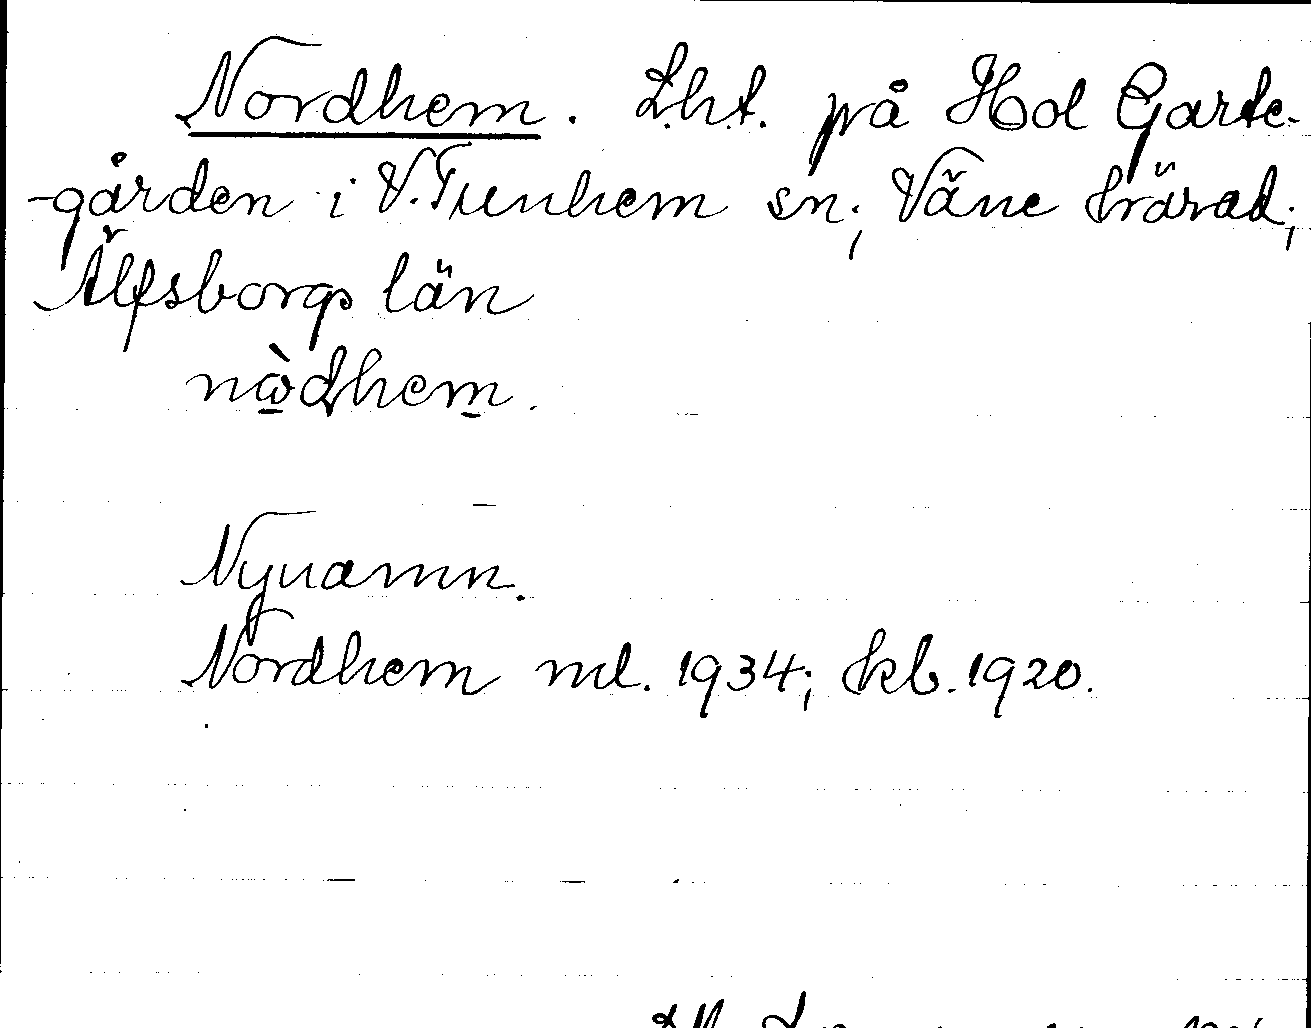 Nordhem. Lht. på Hol Garte-
-gården i V. Tunhem sn; Väne härad;
Älfsborgs län
nὼdhem.
Nynamn.
Nordhem ml. 1934; kb. 1920.